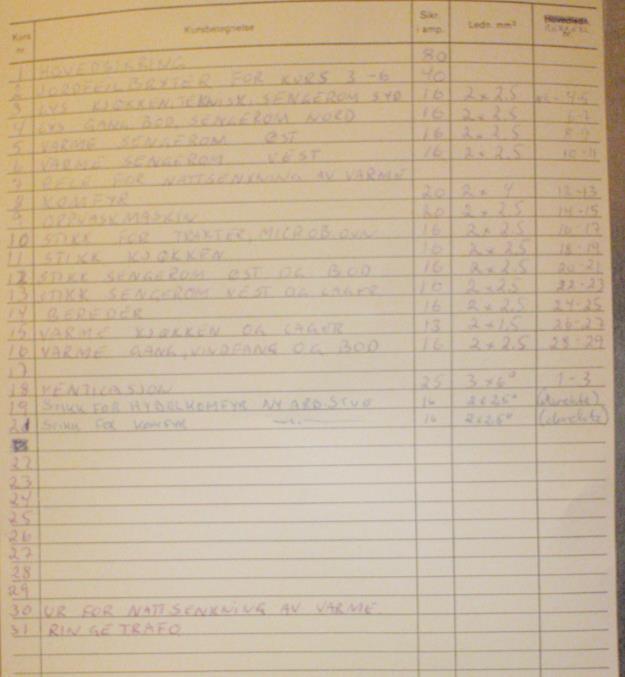 Kurs nr. Kursbetegnelse Sikr. i amp. Ledn. mm² Rekkekl. nr.
1 HOVEDSIKRING 80
2 JORDFEILBRYTER FOR KURS 3-6 40
3 LYS KJØKKEN, TEKNISK, SENGEROM SYD 16 2 x 2.5 4-5
4 LYS GANG, BOD, SENGEROM NORD 16 2 x 2.5 6-7
5 VARME SENGEROM ØST 16 2 x 2.5 8-9
6 VARME SENGEROM VEST 16 2 x 2.5 10-11
7 RELE FOR NATTSENKNING AV VARME
8 KOMFYR 20 2 x 4 12-13
9 OPPVASKMASKIN 20 2 x 2.5 14-15
10 STIKK FOR TRAKTER, MICROB.OVN 16 2 x 2.5 16-17
11 STIKK KJØKKEN 16 2 x 2.5 18-19
12 STIKK SENGEROM ØST OG BOD 16 2 x 2.5 20-21
13 STIKK SENGEROM VEST OG LAGER 16 2 x 2.5 22-23
14 BEREDER 16 2 x 2.5 24-25
15 VARME KJØKKEN OG LAGER 13 2 x 1.5 26-27
16 VARME GANG, VINDFANG OG BOD 16 2 x 2.5 28-29
17
18 VENTILASJON 25 3 x 6² 1-3
19 STIKK FOR HYBELKOMFYR NY ARB.STUE 16 2x2.5² (direkte)
20 STIKK FOR KOMFYR 16 2x2.5² (direkte)
22
23
24
25
26
27
28
29
30 UR FOR NATTSENKNING AV VARME.
31 RINGETRAFO